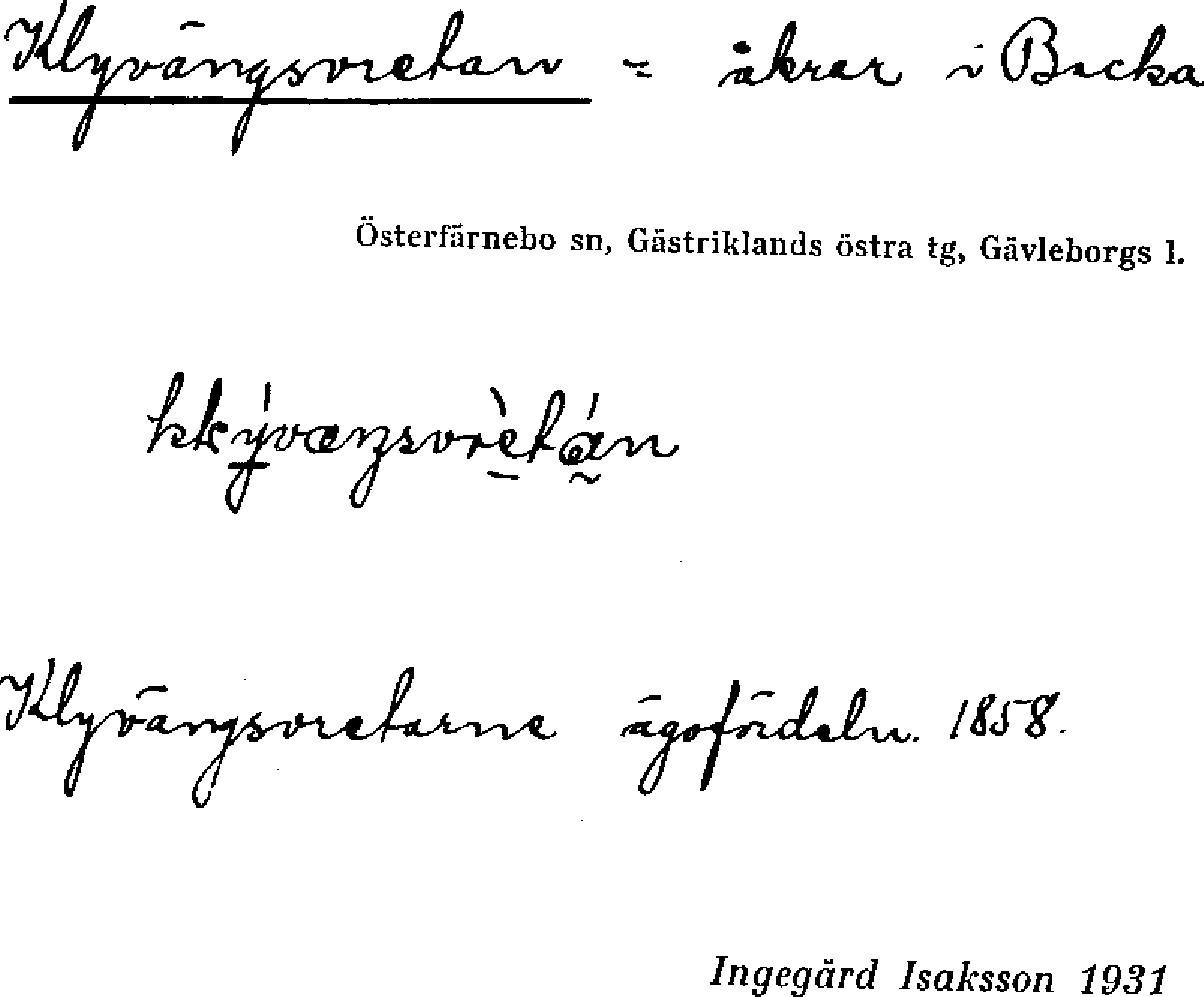 Klyvängsvretan = åkrar i Backa
Österfärnebo sn, Gästriklands östra tg, Gävleborgs l.
Klyvängsvretarne ägofördeln. 1858.
Ingegärd Isaksson 1931